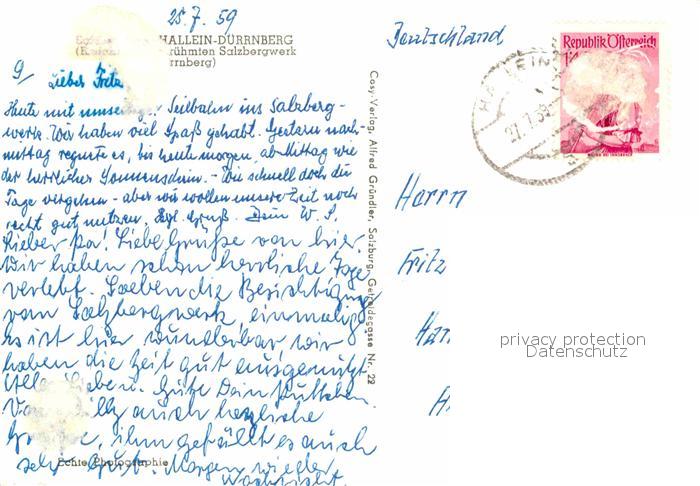 25.7.59
HALLEIN-DÜRRNBERG
ühmten Salzbergwerk
rrnberg)
9/ Lieber Fritz
Heute mit umseitiger Seilbahn ins Salzberg-
werk. Wir haben viel Spaß gehabt. Gestern nach-
mittag regnete es, bis heute morgen, ab Mittag wie
der herrlicher Sonnenschein. - Wie schnell doch die
Tage vergehen - aber wir wollen unsere Zeit noch
recht gut nutzen. Hzl. Gruß. Dein W. S.
Lieber Pa! Liebe Grüße von hier.
Wir haben schon herrliche Tage
verlebt. Soeben die Besichtigung
vom Salzbergwerk einmalig
es ist hier wunderbar wir
haben die Zeit gut ausgenutzt
Alles Lieben. Güte Dein
auch herzliche
ihm gefällt es auch
sehr gut. Morgen wieder
Echte Photographie
Cosy-Verlag, Alfred Gründler, Salzburg, Getreidegasse Nr. 22
Deutschland
Republik Österreich
HALLEIN
27.7.59
Herrn
Fritz
Han
H
privacy protection
Datenschutz